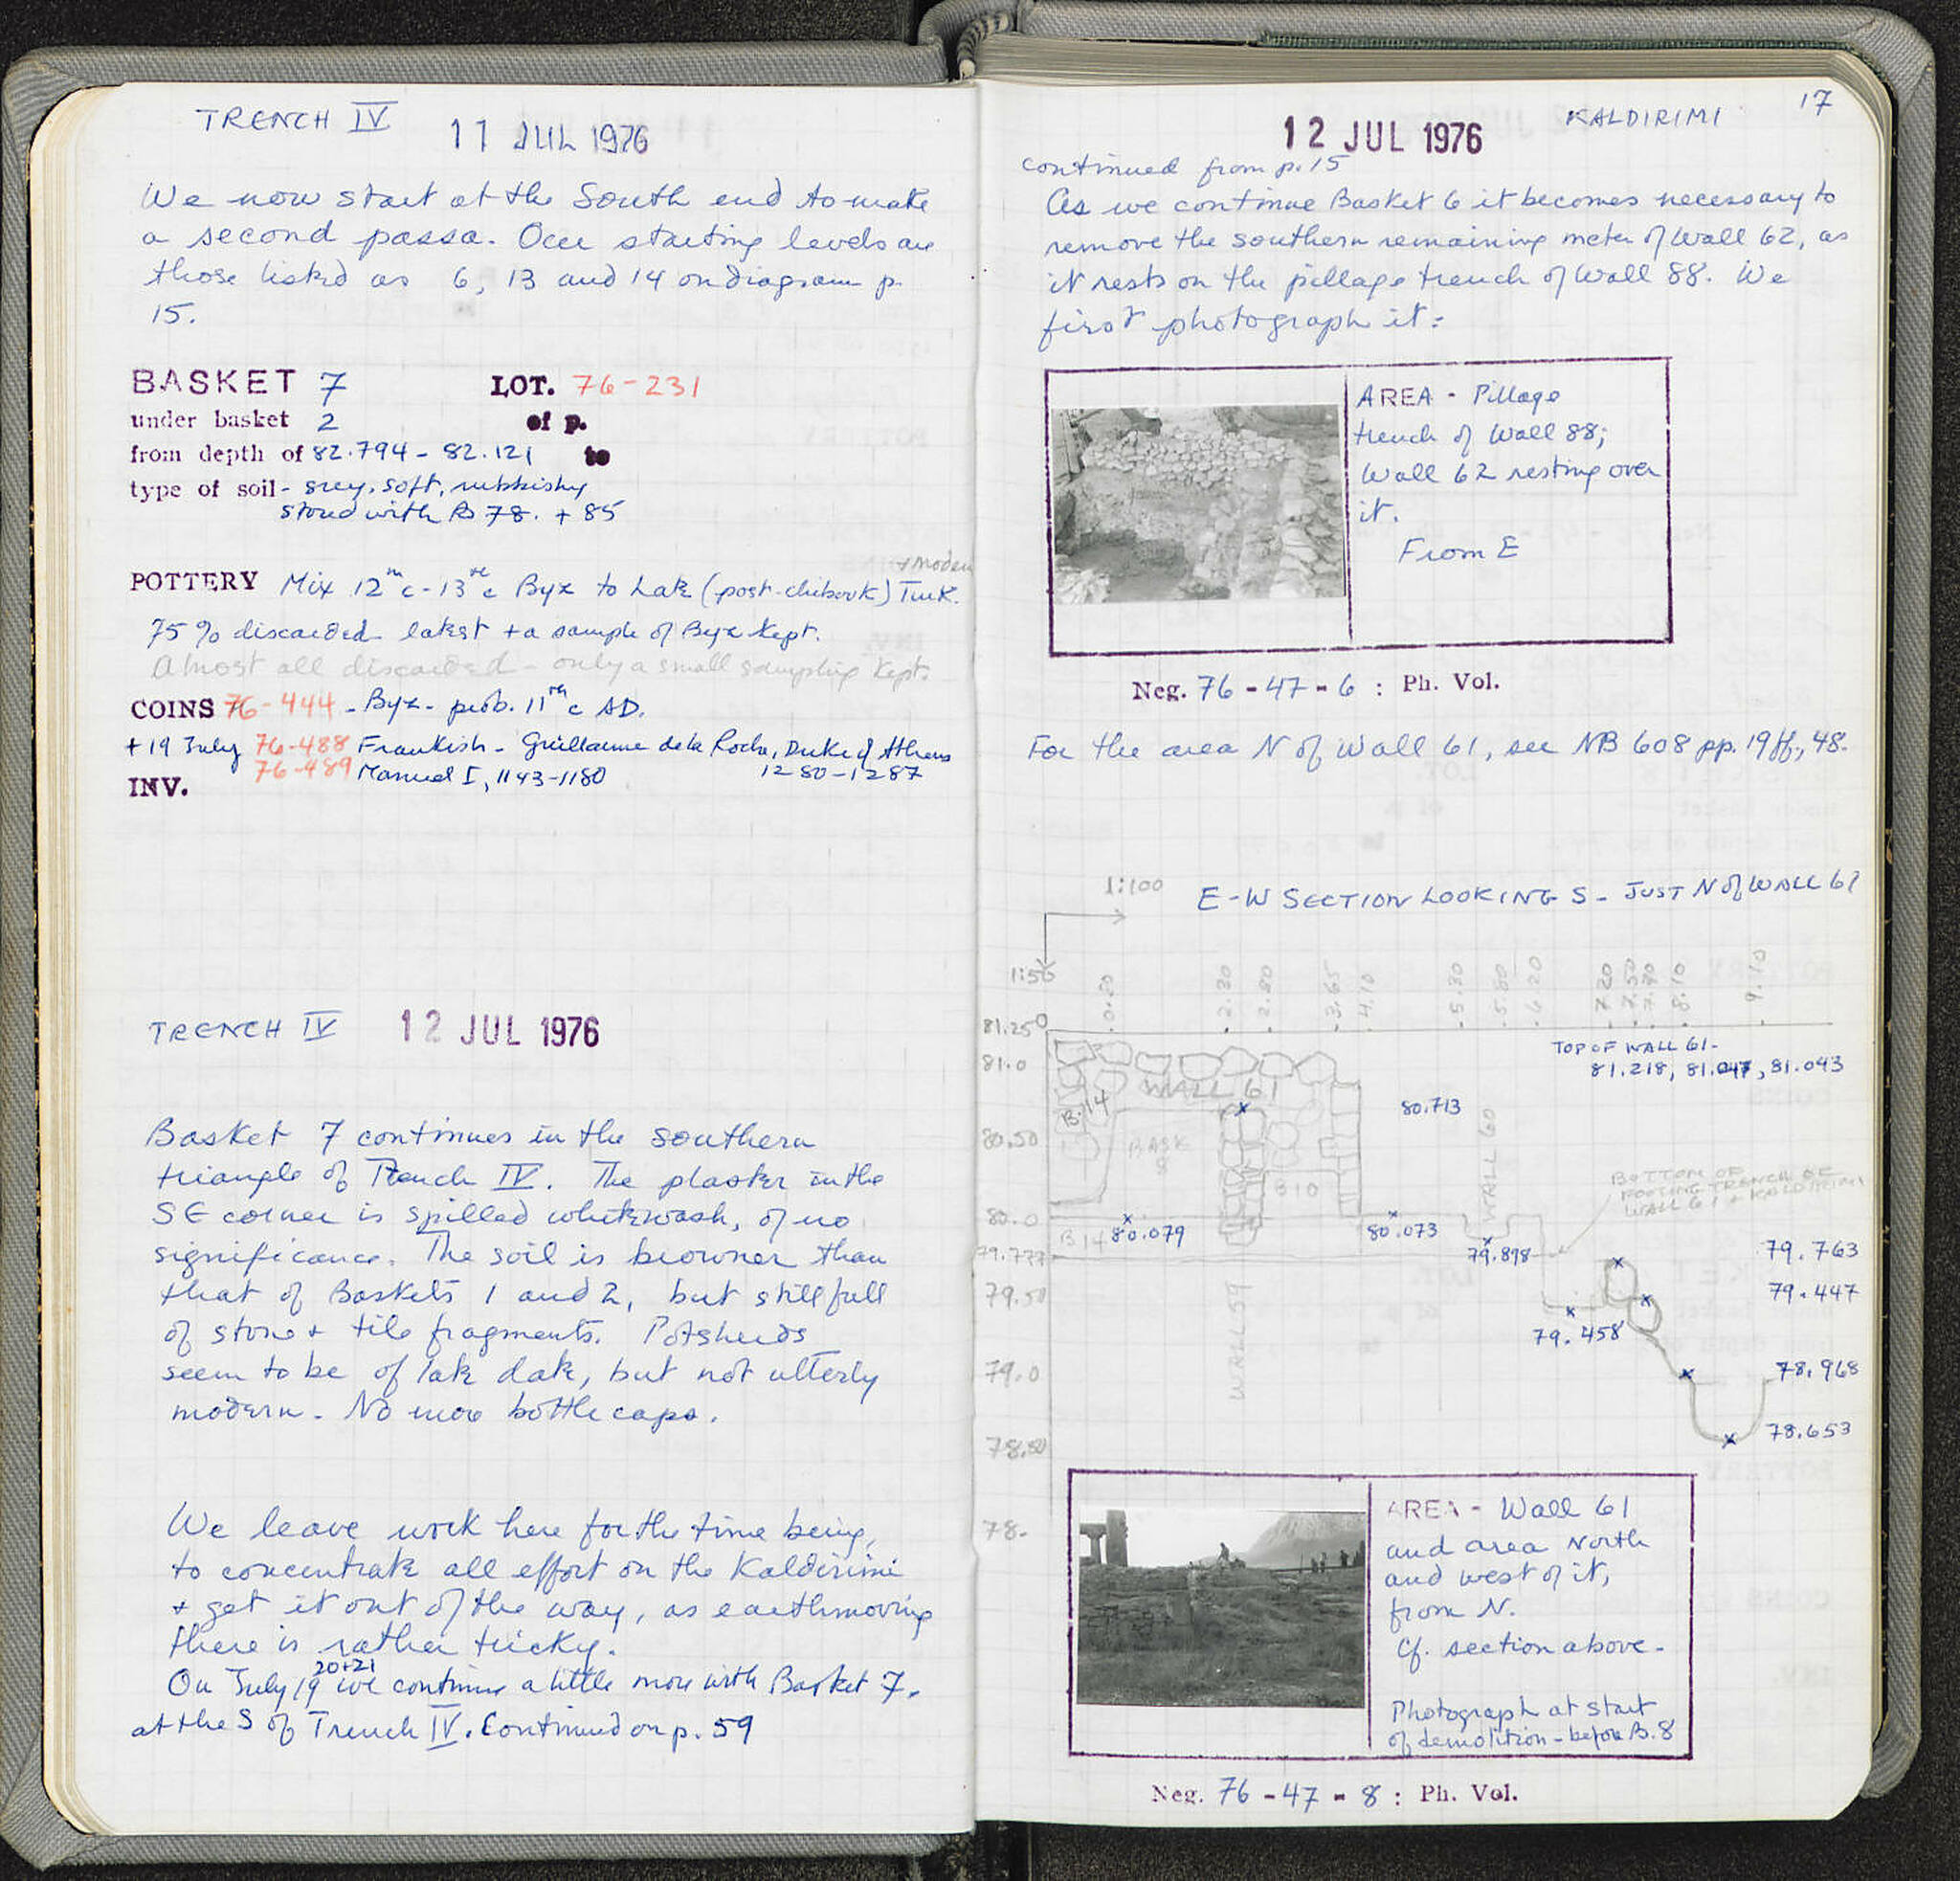 TRENCH IV 11 JUL 1976
We now start at the South end to make
a second passa. Our starting levels are
those listed as 6, 13 and 14 on diagram p.
15.
BASKET 7 LOT. 76-231
under basket 2 of p.
from depth of 82.794 - 82.121 to
type of soil - grey, soft, rubbishy
stored with B 78. + 85
+ modern
POTTERY Mix 12th c - 13th c Byz to Late (post-chibouk) Turk.
75% discarded latest + a sample of Byz kept.
Almost all discarded - only a small sampling kept.
COINS 76-444 - Byz - prob. 11th c AD.
+ 19 July 76-488 Frankish - Guillaume de la Roche, Duke of Athens
1280-1287
76-489 Manuel I, 1143-1180
INV.
TRENCH IV 12 JUL 1976
Basket 7 continues in the southern
triangle of Trench IV. The plaster in the
SE corner is spilled whitewash, of no
significance. The soil is browner than
that of Baskets 1 and 2, but still full
of stone + tile fragments. Potsherds
seem to be of late date, but not utterly
modern. No more bottle caps.
We leave work here for the time being,
to concentrate all effort on the Kaldirimi
+ get it out of the way, as earthmoving
there is rather tricky.
20+21
On July 19 we continue a little more with Basket 7,
at the S of Trench IV. Continued on p. 59
12 JUL 1976 KALDIRIMI 17
continued from p. 15
As we continue Basket 6 it becomes necessary to
remove the southern remaining meter of Wall 62, as
it rests on the pillage trench of Wall 88. We
first photograph it:
AREA - Pillage
trench of Wall 88;
Wall 62 resting over
it.
From E
Neg. 76-47-6 : Ph. Vol.
For the area N of Wall 61, see NB 608 pp. 19ff, 48.
1:100
E-W SECTION LOOKING S - JUST N of WALL 61
1:50
0.20 2.30 2.80 3.65 4.10 5.30 5.80 6.20 7.20 7.50 7.70 8.10 9.10
81.25 0
TOP OF WALL 61-
81.218, 81.047, 81.043
81.0
WALL 61
B.14
80.713
80.50
BASK
8
WALL 60
B10
BOTTOM OF
FOOTING TRENCH OF
WALL 61 + KALDIRIMI
80.0
B14 80.079
80.073
79.898
79.777
79.763
79.50
79.447
WALL 59
79.458
79.0
78.968
78.50
78.653
78.
AREA - Wall 61
and area North
and west of it,
from N.
Cf. section above.
Photograph at start
of demolition - before B.8
Neg. 76-47-8 : Ph. Vol.